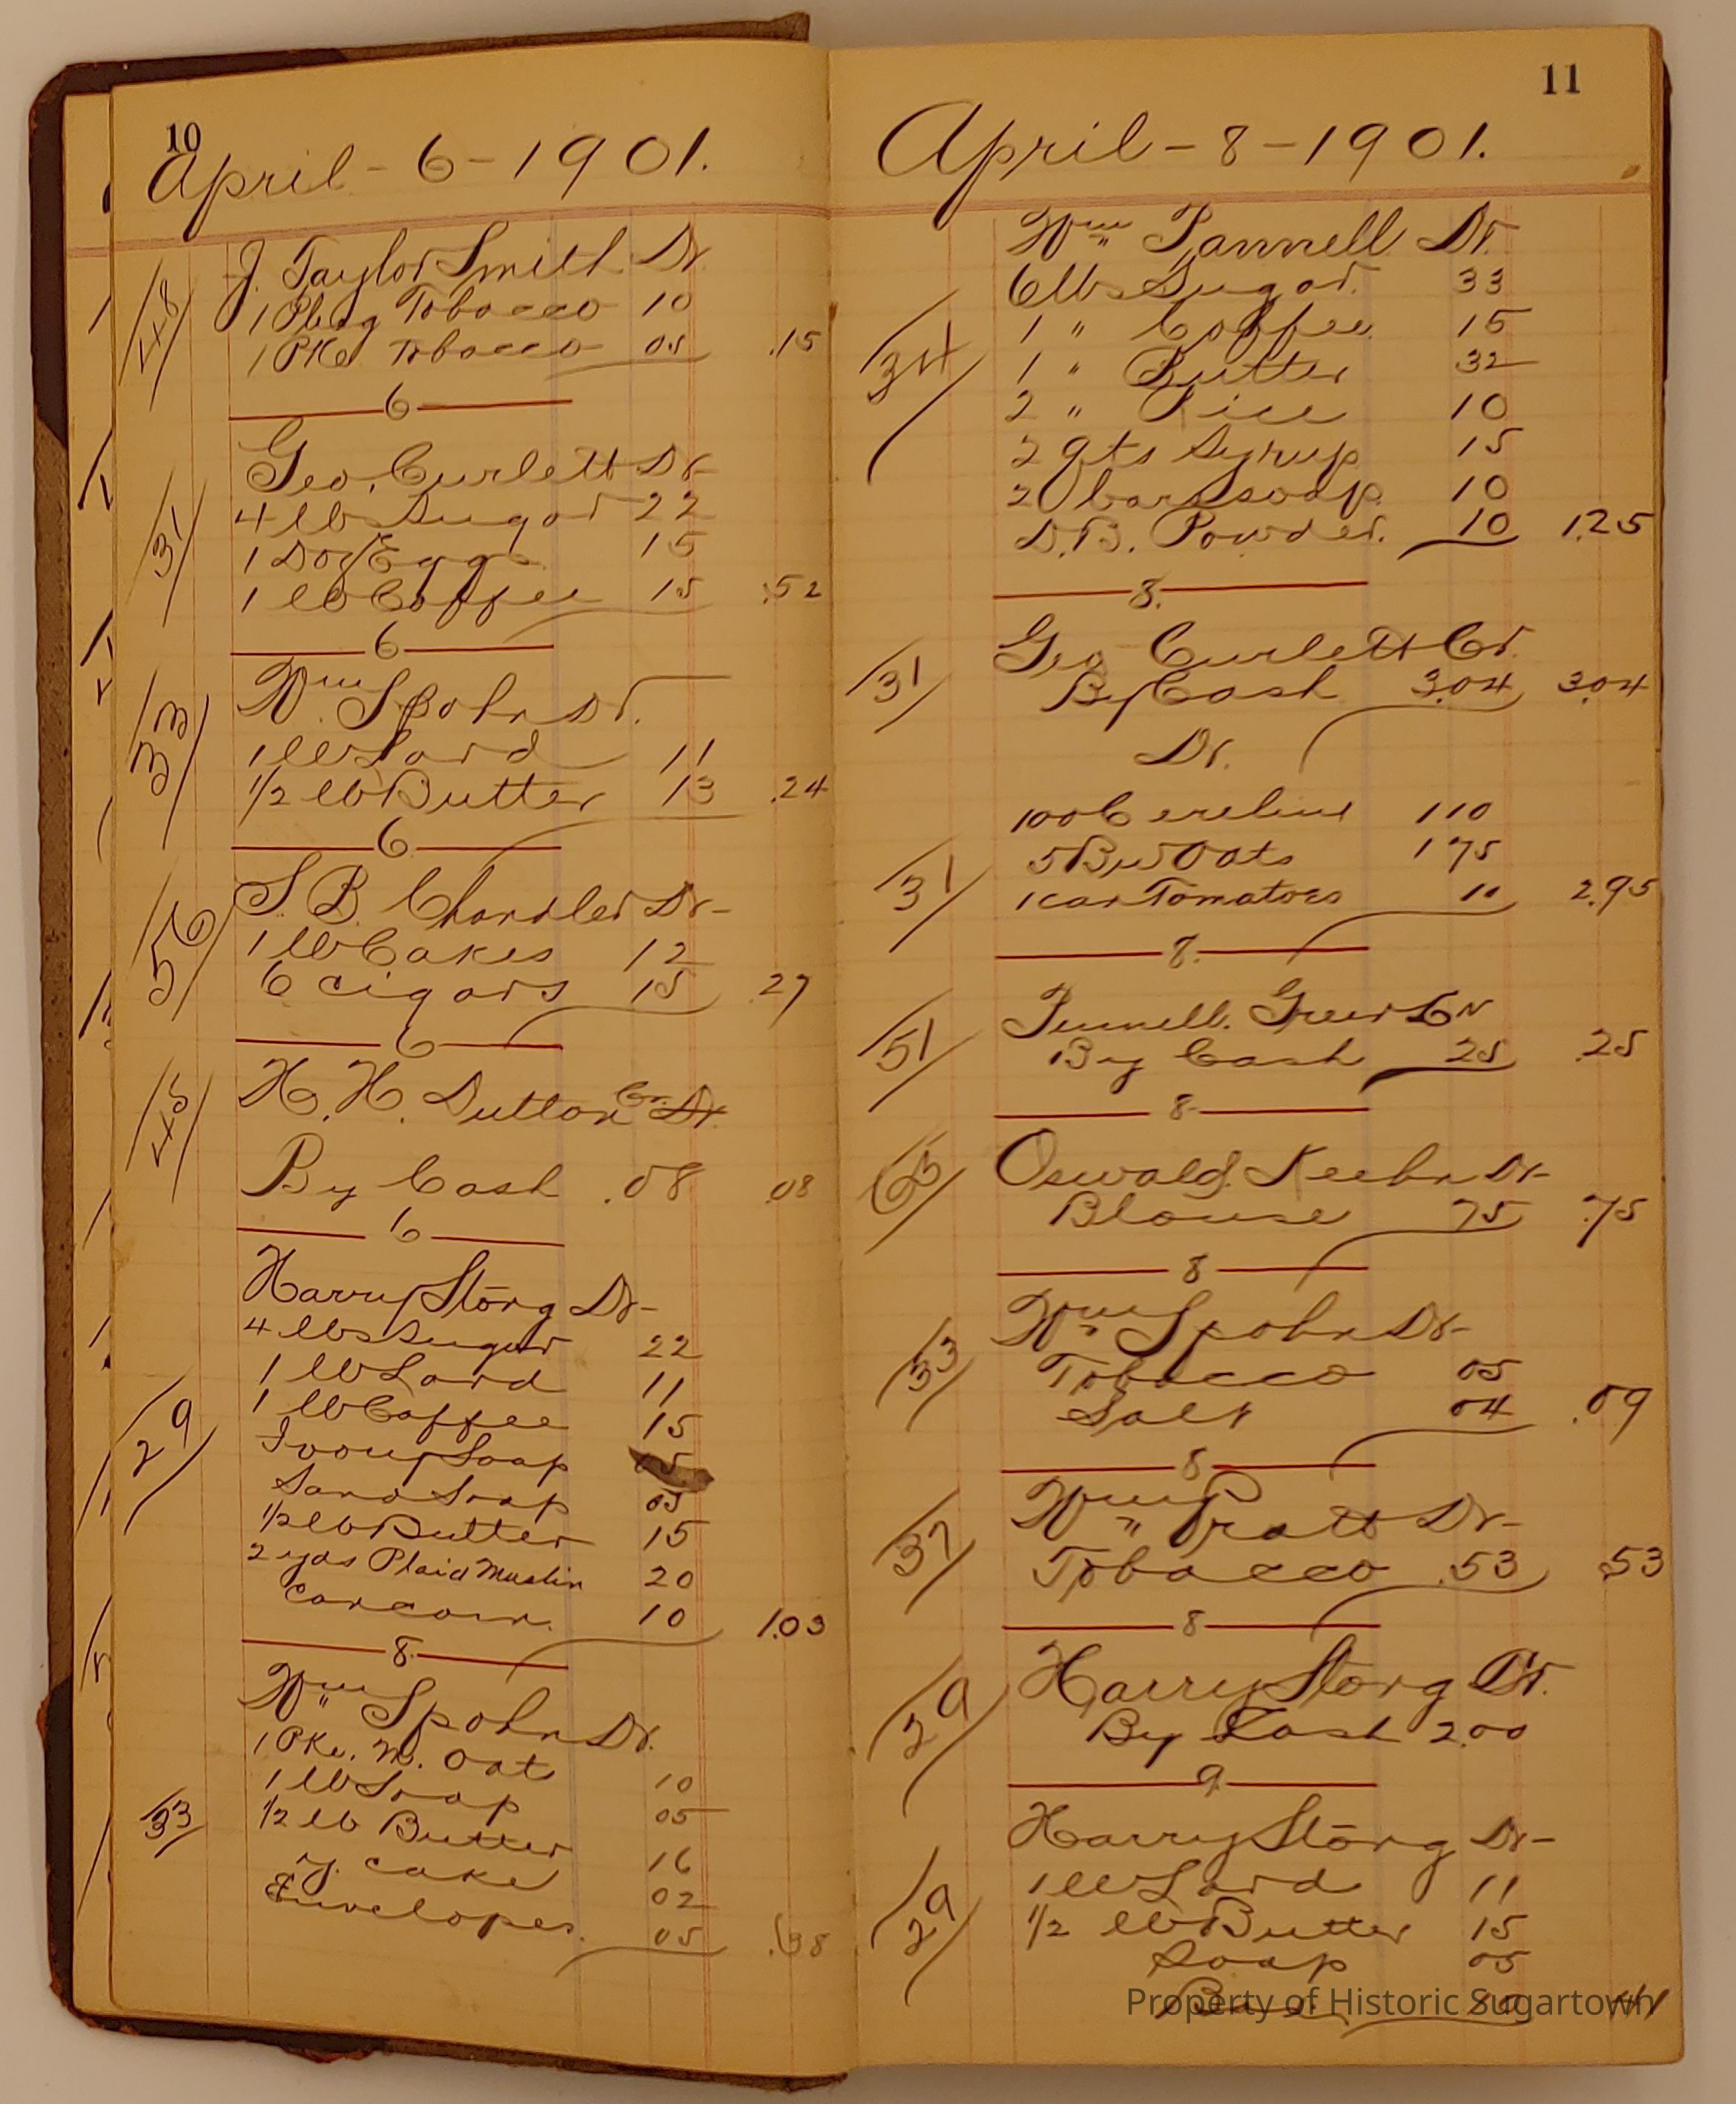 10
April - 6 - 1901.
48
J. Taylor Smith Dr
1 Plug Tobacco 10
1 PKe Tobacco 05 .15
6
31
Geo. Curlett Dr
4 lbs Sugar 22
1 Doz Eggs 15
1 lb Coffee 15 .52
6
33
Wm Spohn Dr.
1 lb Lard 11
1/2 lb Butter 13 .24
6
56
S. B. Chandler Dr
1 lb Cakes 12
6 cigars 15 .27
6
45
H. H. Dutton Cr. Dr.
By Cash .08 .08
6
Harry Storg Dr
4 lbs Sugar 22
1 lb Lard 11
1 lb Coffee 15
29
Ivory Soap 05
Sand Soap 05
1/2 lb Butter 15
2 yds Plaid Muslin 20
10 1.03
8
Wm Spohn Dr.
1 PKe. M. Oats 10
1 lb Soap 05
33
1/2 lb Butter 16
y. cake 02
Envelopes. 05 .38
11
April - 8 - 1901.
Wm Pannell Dr.
6 lbs Sugar. 33
1 " Coffee 15
34
1 " Butter 32
2 " Rice 10
2 qts Syrup 15
2 bars soap 10
D.B. Powder. 10 1.25
8.
Geo Curlett Cr.
31
By Cash 3.04 3.04
Dr.
100 Cereline 110
5 Bus Oats 175
31
1 can Tomatoes 10 2.95
8.
Pennell. Greer Cr
51
By Cash 25 .25
8
65
Oswald Keehn Dr
Blouse 75 .75
8
Wm Spohn Dr
33
Tobacco 05
Salt 04 .09
8
Wm Pratt Dr
37
Tobacco .53 .53
8
29
Harry Storg Cr.
By Cash 2.00
9
Harry Storg Dr
1 lb Lard 11
29
1/2 lb Butter 15
Soap 05
10 .41
Property of Historic Sugartown